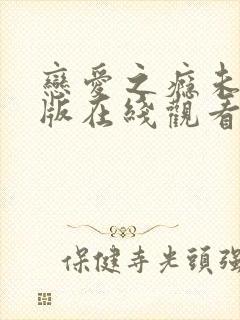 戀愛之癮未
版在綫觀看
保健寺光頭強